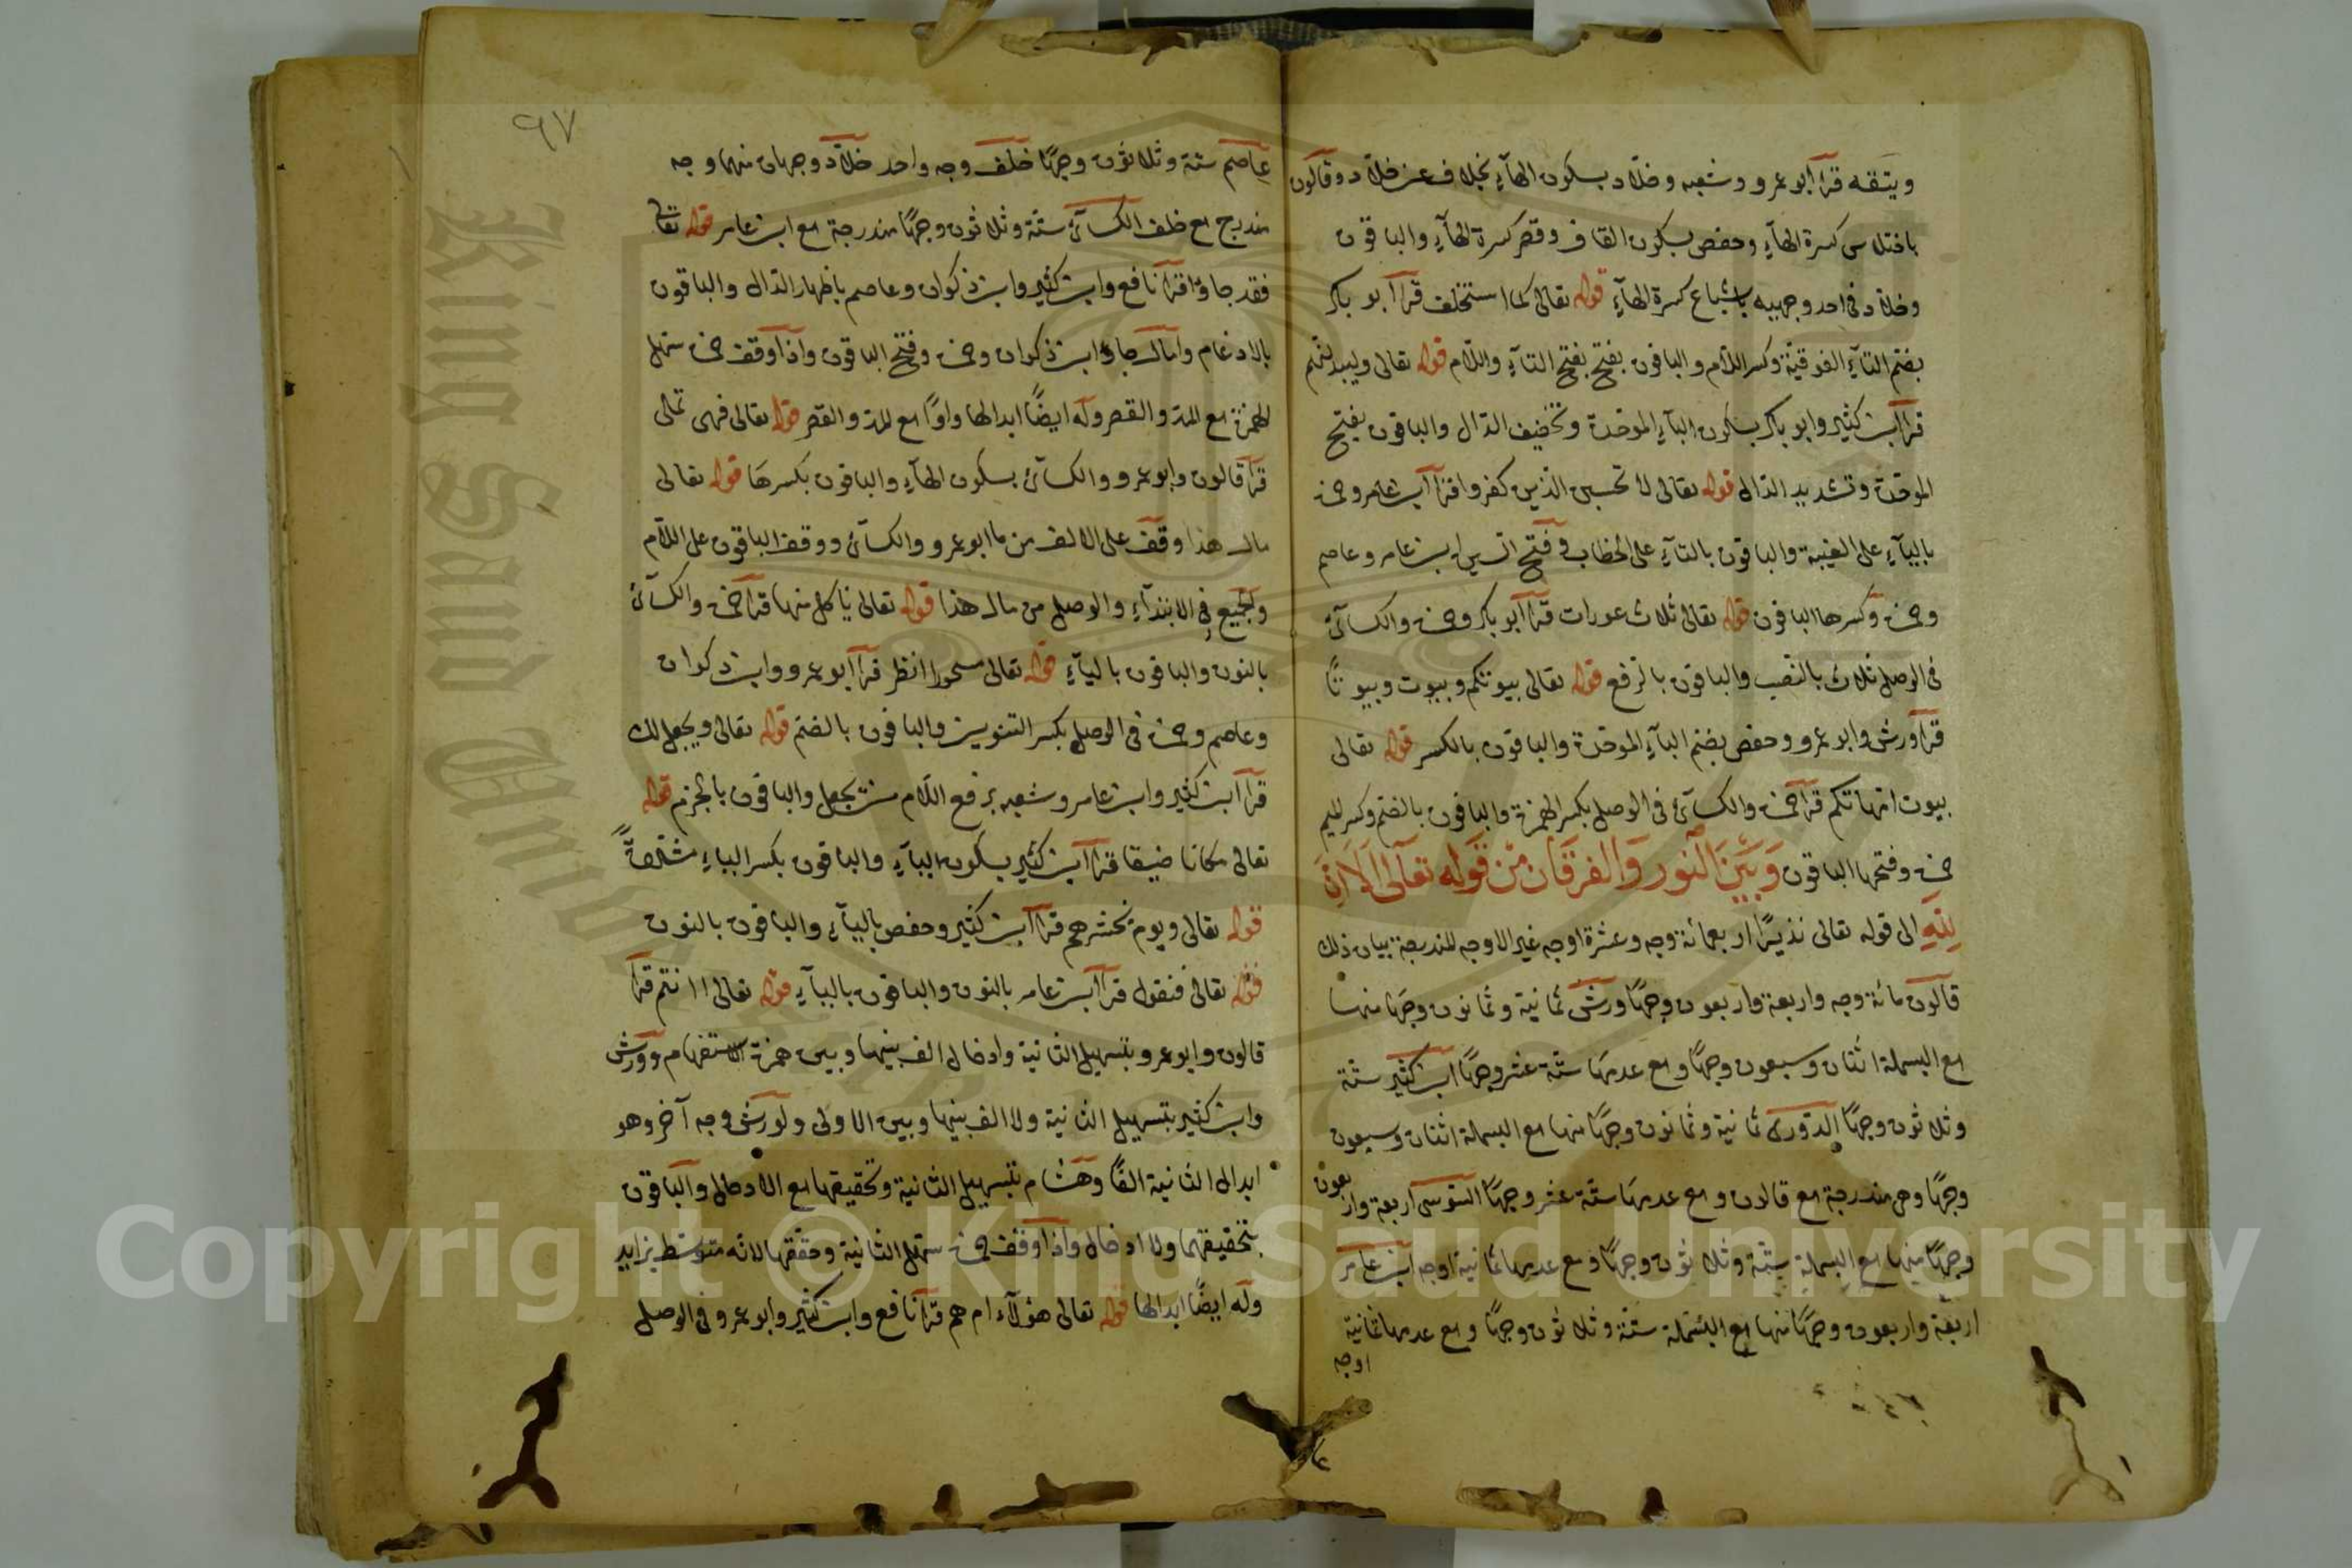 ويتقه قرأ أبو عمرو وشعبه وخلاد بسكون الهاء بخلاف عن خلاد وقالون
باختلاس كسرة الهاء وحفص بسكون القاف وقصر كسرة الهاء والباقون
وخلاد في احد وجهيه باشباع كسرة الهاء قوله تعالى كما استخلف قرأ أبو بكر
بضم التاء الفوقية وكسر اللام والباقون بفتح بفتح التاء واللام قوله تعالى وليبدلنهم
قرأ ابن كثير وابو بكر بسكون الباء الموحدة وتخفيف الدال والباقون بفتح
الموحدة وتشديد الدال قوله تعالى لا تحسبن الذين كفروا قرأ ابن عامر وحمزة
بالياء على الغيبة والباقون بالتاء على الخطاب وفتح السين ابن عامر وعاصم
وحمزة وكسرها الباقون قوله تعالى ثلاث عورات قرأ أبو بكر وحمزة والكسائي
في الوصل ثلاث بالنصب والباقون بالرفع قوله تعالى بيوتكم وبيوت وبيوتا
قرأ ورش وابو عمرو وحفص بضم الباء الموحدة والباقون بالكسر قوله تعالى
بيوت امهاتكم قرأ حمزة والكسائي في الوصل بكسر الهمزة والباقون بالضم وكسر الميم
حمزة وفتحها الباقون وَبَيْنَ النُّور وَالفرقَان مِنْ قَوله تعَالى اَلَا اِنَّ
لِلّٰهِ الى قوله تعالى نذيرًا اربعمائة وجه وعشرة اوجه غير الاوجه المندرجة بيان ذلك
قالون مائة وجه واربعة واربعون وجهًا ورش ثمانية وثمانون وجهًا منها
مع البسملة اثنان وسبعون وجهًا ومع عدمها ستة عشر وجهًا ابن كثير ستة
وثلاثون وجهًا الدوري ثمانية وثمانون وجهًا منها مع البسملة اثنان وسبعون
وجهًا وهي مندرجة مع قالون ومع عدمها ستة عشر وجهًا السوسي اربعة واربعون
وجهًا منها مع البسملة ستة وثلاثون وجهًا ومع عدمها ثمانية اوجه ابن عامر
اربعة واربعون وجهًا منها مع البسملة ستة وثلاثون وجهًا ومع عدمها ثمانية
اوجه
٩٧
عاصم ستة وثلاثون وجهًا خلف وجه واحد خلاد وجهان منهما وجه
مندرج مع خلف الكسائي ستة وثلاثون وجهًا مندرجة مع ابن عامر قوله تعالى
فقد جاؤا قرأ نافع وابن كثير وابن ذكوان وعاصم باظهار الدال والباقون
بالادغام وامال جاؤا ابن ذكوان وحمزة وفتح الباقون واذا وقف حمزة سهل
الهمزة مع المد والقصر وله ايضًا ابدالها واوًا مع المد والقصر قوله تعالى فهى تملى
قرأ قالون وابو عمرو والكسائي بسكون الهاء والباقون بكسرها قوله تعالى
مال هذا وقف على الالف من ما ابو عمرو والكسائي ووقف الباقون على اللام
والجميع في الابتداء والوصل من مال هذا قوله تعالى ياكل منها قرأ حمزة والكسائي
بالنون والباقون بالياء قوله تعالى مسحورا انظر قرأ أبو عمرو وابن ذكوان
وعاصم وحمزة في الوصل بكسر التنوين والباقون بالضم قوله تعالى ويجعل لك
قرأ ابن كثير وابن عامر وشعبه برفع اللام من يجعل والباقون بالجزم قوله
تعالى مكانا ضيقا قرأ ابن كثير بسكون الياء والباقون بكسر الياء مشددةً
قوله تعالى ويوم نحشرهم قرأ ابن كثير وحفص بالياء والباقون بالنون
قوله تعالى فنقول قرأ ابن عامر بالنون والباقون بالياء قوله تعالى اانتم قرأ
قالون وابو عمرو بتسهيل الثانية وادخال الف بينها وبين همزة الاستفهام وورش
وابن كثير بتسهيل الثانية ولا الف بينها وبين الاولى ولورش وجه آخر وهو
ابدال الثانية الفًا وهشام بتسهيل الثانية وتحقيقها مع الادخال والباقون
بتحقيقهما ولا ادخال واذا وقف حمزة سهل الثانية وحققها لانه متوسط بزايد
وله ايضًا ابدالها قوله تعالى هؤلاء ام هم قرأ نافع وابن كثير وابو عمرو في الوصل
Copyright © King Saud University
King Saud University